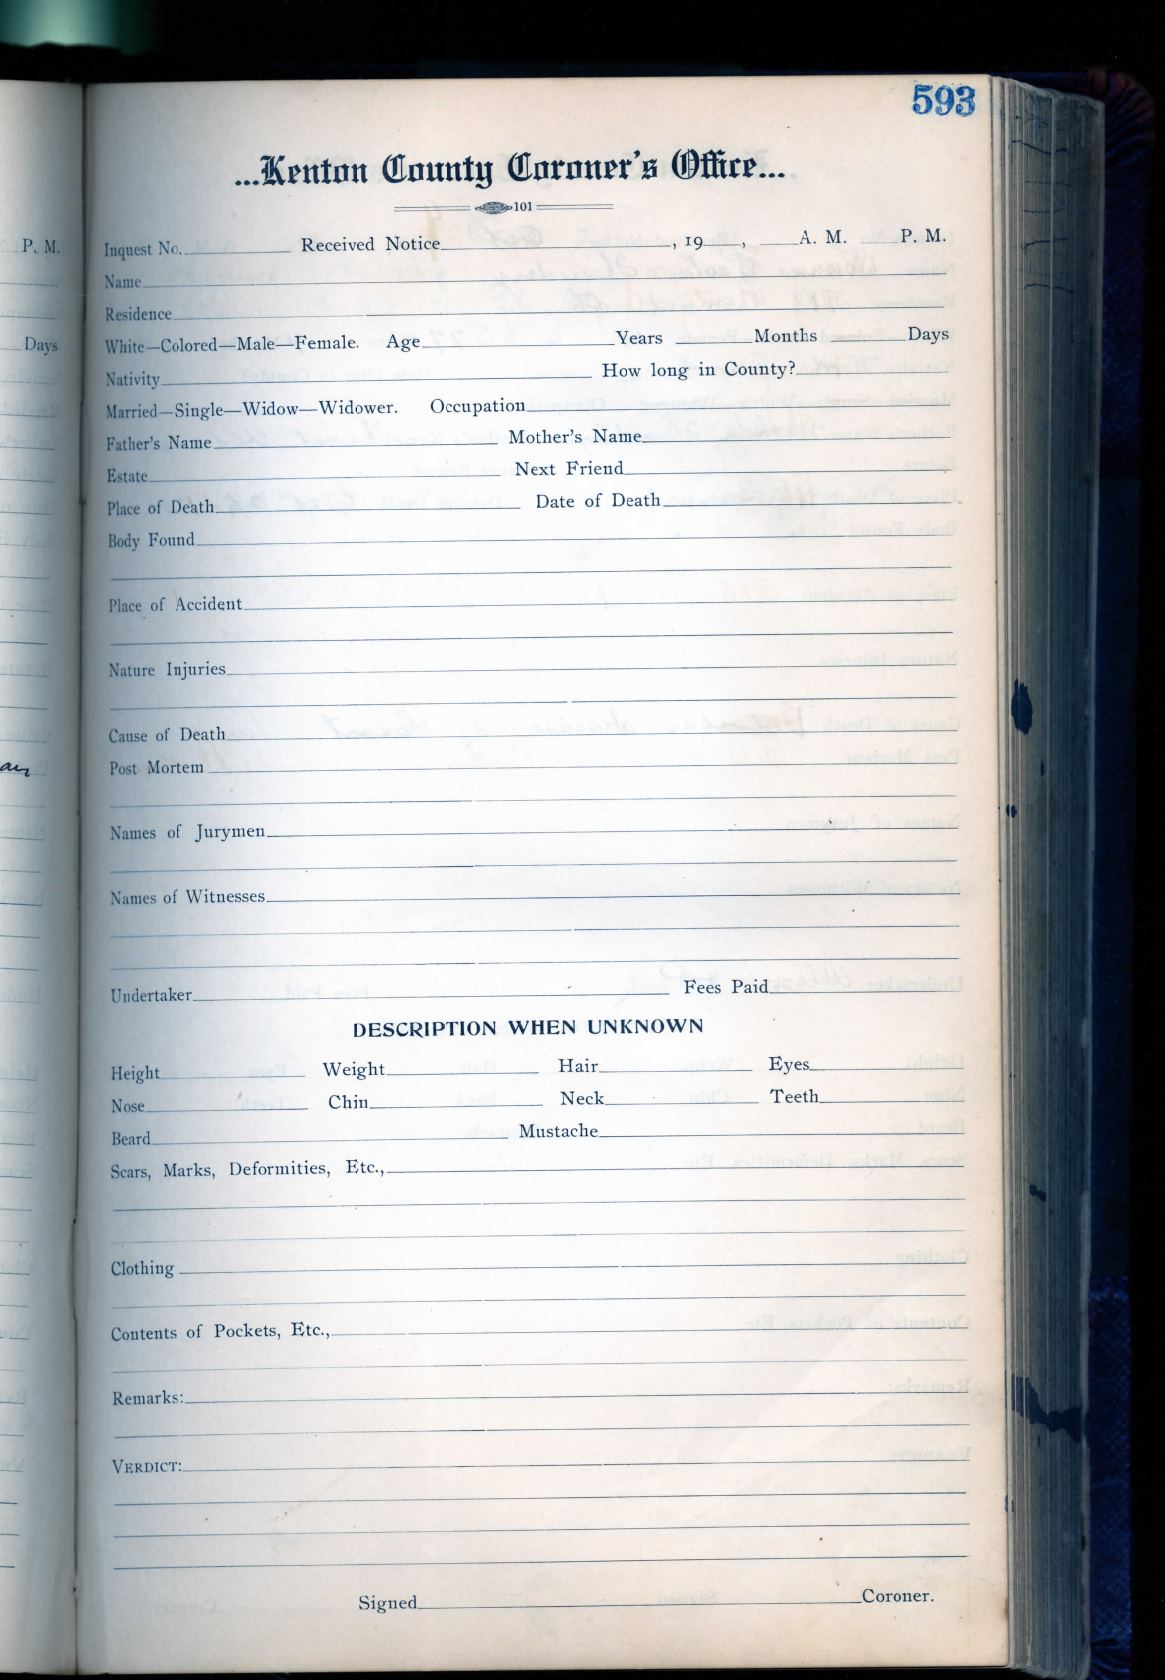 593
...Kenton County Coroner's Office...
101
Inquest No. Received Notice , 19 , A. M. P. M.
Name
Residence
White—Colored—Male—Female. Age Years Months Days
Nativity How long in County?
Married—Single—Widow—Widower. Occupation
Father's Name Mother's Name
Estate Next Friend
Place of Death Date of Death
Body Found
Place of Accident
Nature Injuries
Cause of Death
Post Mortem
Names of Jurymen
Names of Witnesses
Undertaker Fees Paid
DESCRIPTION WHEN UNKNOWN
Height Weight Hair Eyes
Nose Chin Neck Teeth
Beard Mustache
Scars, Marks, Deformities, Etc.,
Clothing
Contents of Pockets, Etc.,
Remarks:
VERDICT:
Signed Coroner.
P. M.
Days